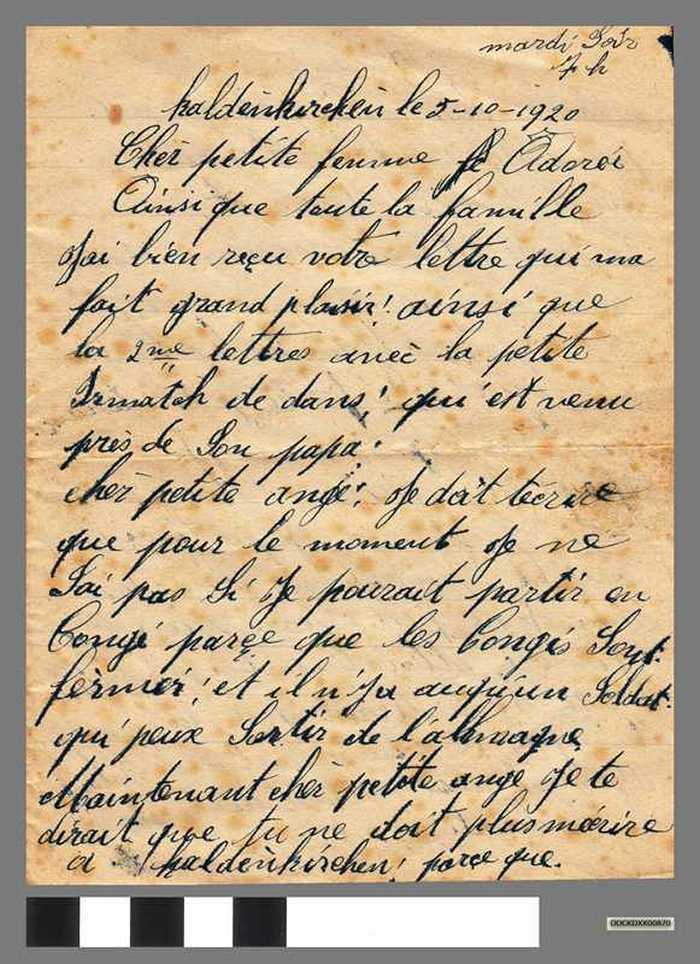 mardi Soir
7 h
Kaldenkirchen le 5-10-1920
Cher petite femme Adorér
Ainsi que toute la famille
J'ai bien reçu votre lettre qui ma
fait grand plaisir! ainsi que
la 2me lettres avec la petite
de dans! qui est venu
près de Son papa.
cher petite ange! Je doit técrire
que pour le moment Je ne
Sai pas Si Je pourait partir en
Congé parçe que les Congés Sont
fermér! et il n'y a auqu'un Soldat.
qui peux Sortir de l'allmagne
Maintenant cher petite ange Je te
dirait que tu ne doit plus mécrire
a Kaldenkirchen! parçe que.
OOCKDXX00870